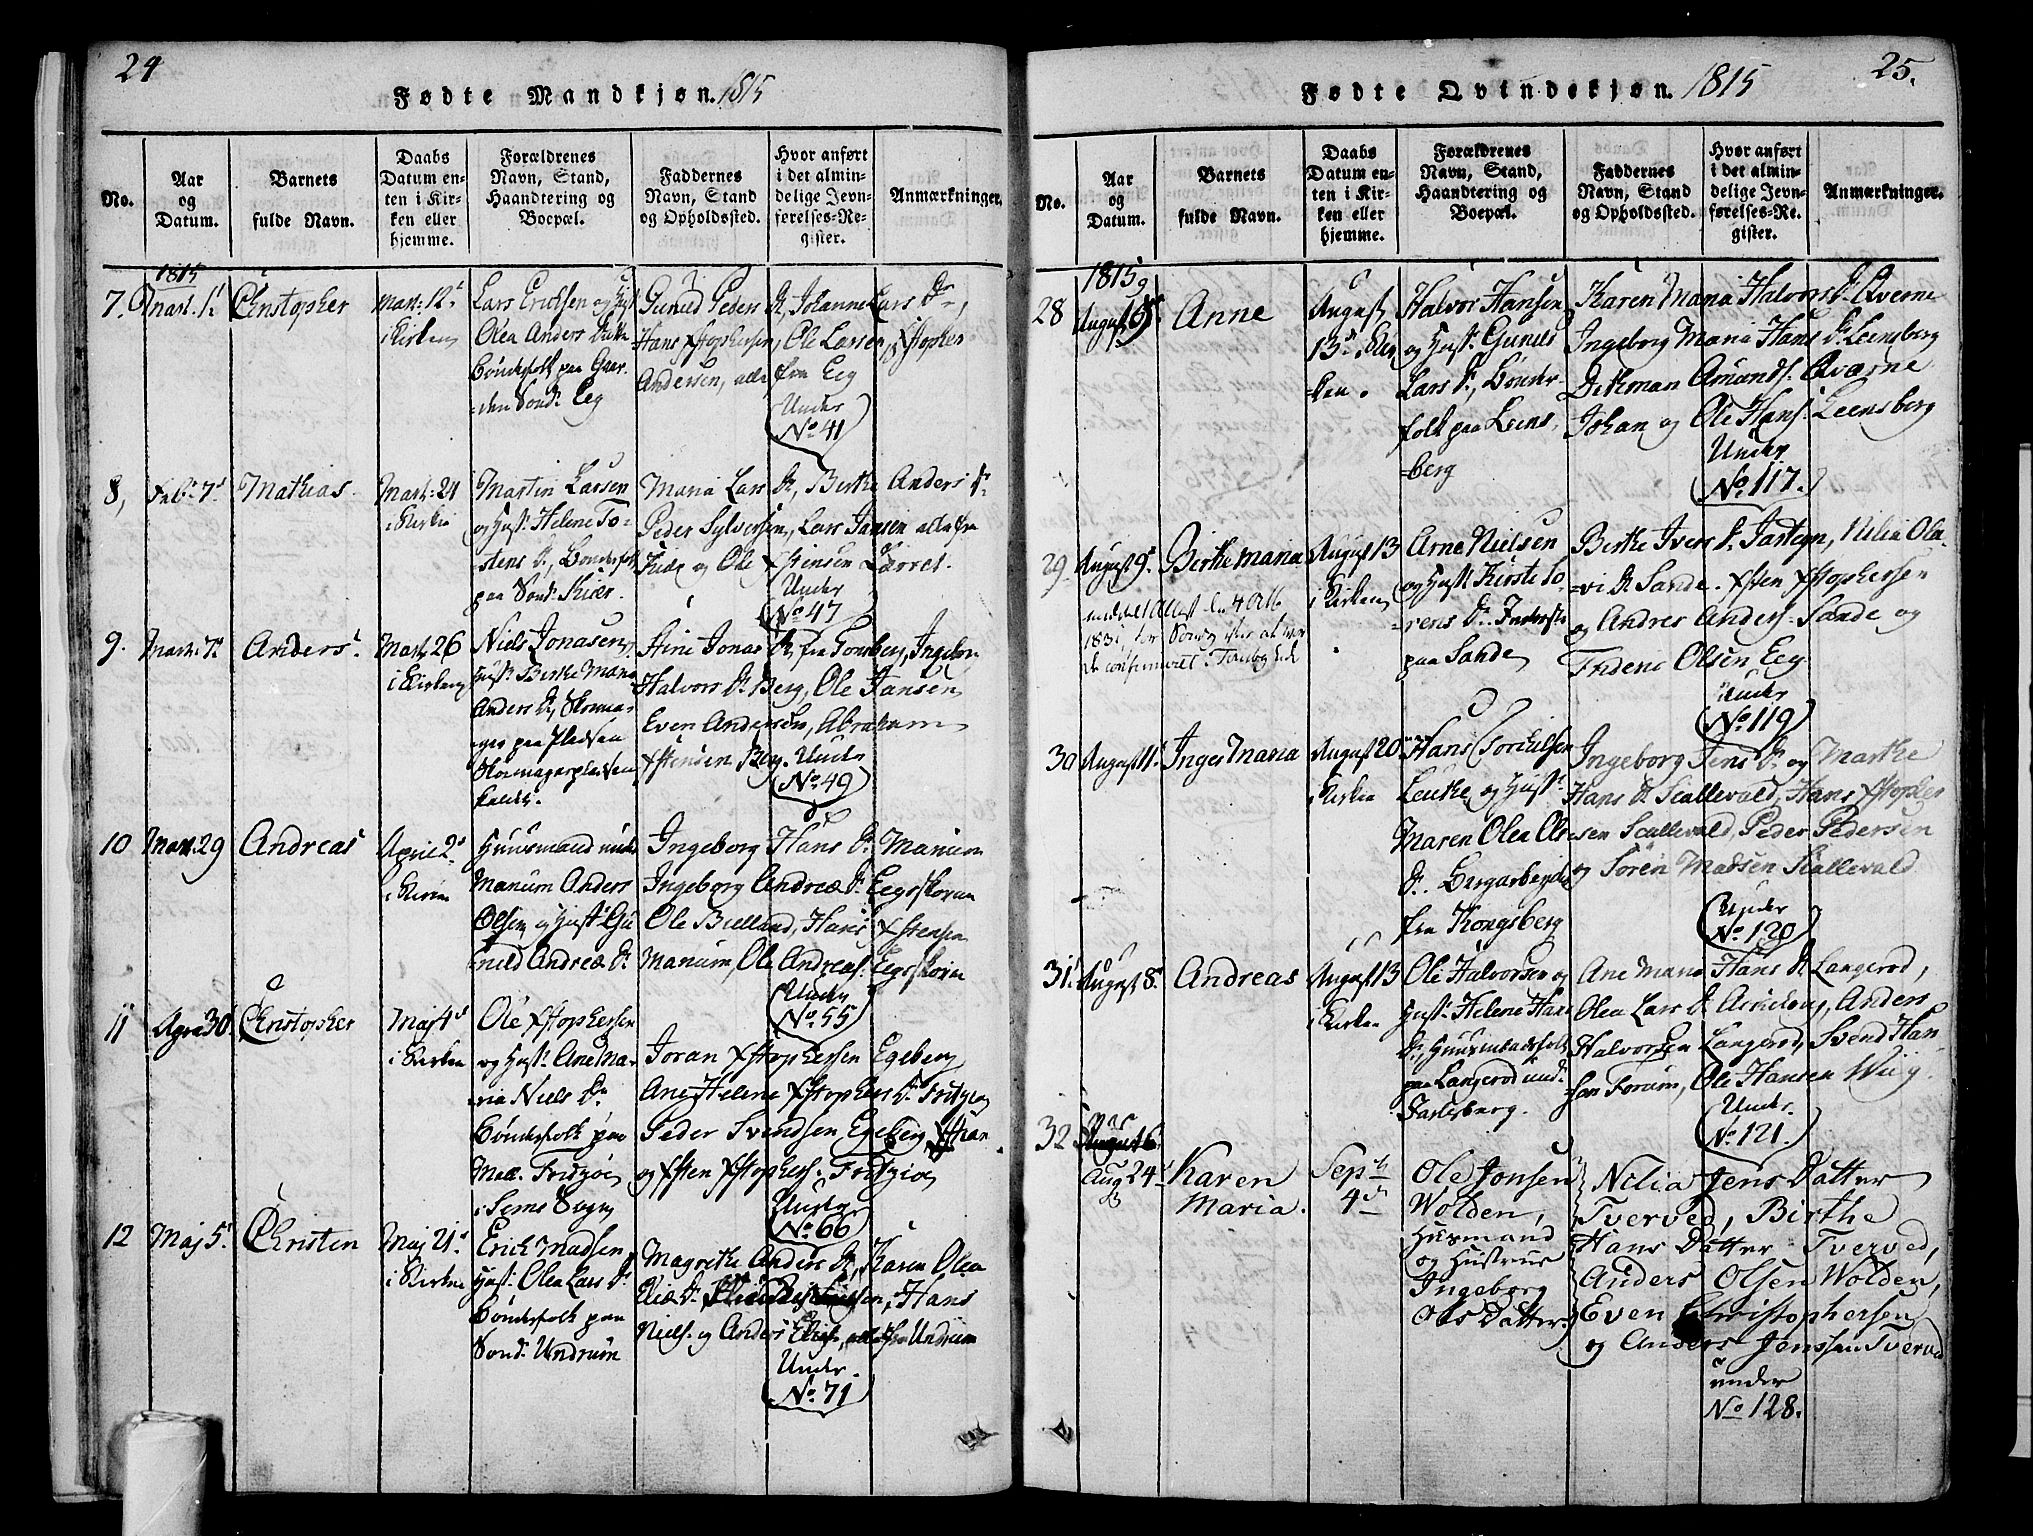 24
Fødte Mandkjøn. 1815
No.
Aar
og
Datum.
Barnets
fulde Navn.
Daabs
Datum en-
ten i Kir-
ken eller
hjemme.
Forældrenes
Navn, Stand,
Haandtering og
Boepæl.
Faddernes
Navn, Stand
og Opholdssted.
Hvor anført
i det almin-
delige Jevn-
førelses-Re-
gister.
Anmærkninger.
1815
7. Mart: 1.
Christopher
Mart: 12.
i Kirken
Lars Erichsen og Hust.
Olea Anders Datter
Bønderfolk paa Gaar-
den Sønd: Eeg
Gunild Peders Dr., Johanne Lars Dr.,
Hans Xstophersen, Ole Larsen, Xstopher
Andersen, alle fra Eeg
Under
No. 41
8, Feb: 7.
Mathias.
Mart: 21
i Kirken
Martin Larsen
og Hust: Helene To-
stens Dr., Bønderfolk
paa Sønd: Kiær.
Maria Lars Dr., Birthe Anders Dr.
Peder Sylversen, Lars Jansen alle fra
og Ole Xstensen
Under
No. 47
9. Mart: 7.
Anders
Mart: 26
i Kirken
Niels Jonasen,
Hust: Birthe Maria
Anders Dr., Skoma-
ger paa Pladsen
Skomagerpladsen
kaldet.
Stine Jonas Dr. fra Tønsberg, Ingebor
Halvors Dr. Berg, Ole Jansen
Even Andersen, Abraham
Xstensen Berg. Under
No. 49
10 Mart: 29
Andreas
April 2.
i Kirken
Huusmand under
Manum Anders
Olsen og Hust: Gu-
nild Andreæ Dr.
Ingeborg Hans Dr. Manum
Ingeborg Andreæ Dr. Eegeskoven
Ole Bulland, Hans Xstensen
Manum, Ole Andreas: Eegeskoven
Under
No. 55
11 April 30.
Christopher
Maj 4.
i Kirken
Ole Xstophersen
og Hust: Ane Ma-
ria Niels Dr.
Bønderfolk paa
Mell: Fridtzøe
i Sems Sogn
Joran Xstophersen Egeberg
Ane Helene Xstophers Dr. Fritzøe
Peder Svendsen Egeberg
og Xsten Xstophers: Fridtzøe
Under
No. 66
12 Maj 5.
Christen
Maj 21.
i Kirken
Erich Madsen
Hust: Olea Lars Dr.
Bønderfolk paa
Sønd: Undrum
Magrethe Anders Dr., Karen Olea
Hans
Niels: og Anders Erichs:, alle fra Undrum
Under
No. 71
25.
Fødte Qvindekjøn. 1815
No.
Aar
og
Datum.
Barnets
fulde Navn.
Daabs
Datum en-
ten i Kir-
ken eller
hjemme.
Forældrenes
Navn, Stand,
Haandtering og
Boepæl.
Faddernes
Navn, Stand
og Opholdssted.
Hvor anført
i det almin-
delige Jevn-
førelses-Re-
gister.
Anmærkninger.
1815
28 August
Anne
August
13. i Kir-
ken.
Halvor Hansen
og Hust: Gunild
Lars Dr., Bønder-
folk paa Leens-
berg
Karen Maria Halvors Dr. Qverne
Ingeborg Maria Hans Dr. Leensberg
Dithman Amunds: Qværne
Johan og Ole Hans: Leensberg
Under
No. 117.
29. August 9.
Birthe Maria
August 13
i Kirken
meddelt Attest den 4 Oct
1831
Arne Nielsen
og Hust: Kirste So-
rens Dr. Inderste
paa Sande
Birthe Ivers Dr. Jartegn, Nilia Ola-
vi Dr. Sande. Xsten Xstophersen
og Andres Anders: Sande og
Tridene Olsen Eeg
Under
No. 119
30 August 11.
Inger Maria
August 20
i Kirken
Hans Torkilsen
Leuthe og Hust:
Maren Olea Ols
Dr. Bergarbeyder
fra Kongsberg
Ingeborg Jens Dr. og Marthe
Hans Dr. Scallevald, Hans Xstopher-
sen Scallevald, Peder Pedersen
og Søren Madsen Scallevald
Under
No. 120
31. August 8.
Andreas
August 13
i Kirken
Ole Halvorsen og
Hust: Helene Hans
Dr., Huusmandsfolk
paa Langerød und:
Jarlsberg.
Ane Maria Hans Dr. Langerød,
Olea Lars Dr. Anders
Halvorsen Langerød, Svend Han-
sen Forum, Ole Hansen Wiig.
Under
No. 121.
32
Aug 24.
Karen
Maria.
Sept:
4de
Ole Jonsen
Wolden,
Husmand
og Hustrue
Ingeborg
Ols Datter.
Nilia Jens Datter
Tverved, Birthe
Hans Datter Tverved,
Anders Olsen Wolden,
Even Christophersen
og Anders Jenssen Tverved
under
No 128.